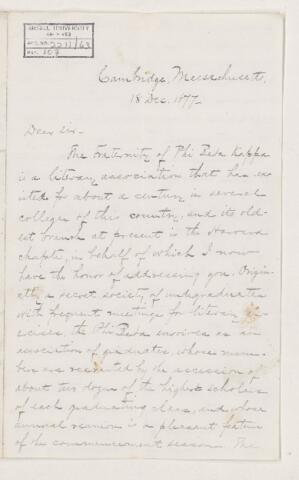 BRISTOL UNIVERSITY
LIBRARY
Cambridge, Massachusetts,
18 Dec. 1877.
Dear Sir.
The Fraternity of Phi Beta Kappa
is a literary association that has ex-
isted for about a century in several
colleges of this country, and its old-
est branch at present is the Harvard
chapter, in behalf of which I now
have the honor of addressing you. Origin-
ally a secret society of undergraduates
with frequent meetings for literary ex-
ercises, the Phi Beta survives as an
association of graduates, whose num-
bers are recruited by the accession of
about two dozen of the highest scholars
of each graduating class, and whose
annual reunion is a pleasant feature
of the commencement season. The